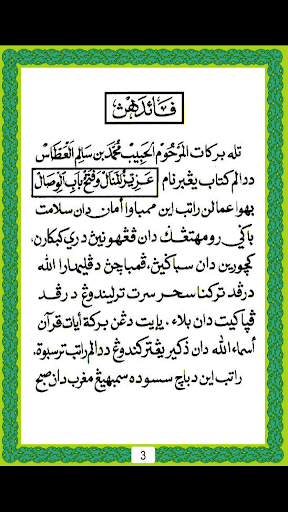 فائدهڽ
تله بركات المرحوم الحبيب محمد بن سالم العطاس
ددالم كتاب يڠبرنام عزيز المنال وفتح باب الوصال
بهوا عمالن راتب اين ممباوا أمان دان سلامت
باݢي رومهتڠݢ دان ڤڠهونيڽ دري كبكارن،
كچورين دان سباݢيڽ، ڤمباچڽ دڤليهارا الله
درڤد تركنا سحر سرت ترليندوڠ درڤد
ڤڽاكيت دان بلاء، يايت دڠن بركة أيات قرآن
أسماء الله دان ذكير يڠتركندوڠ ددالم راتب ترسبوة،
راتب اين دباچ سسوده سمبهيڠ مغرب دان صبح
3